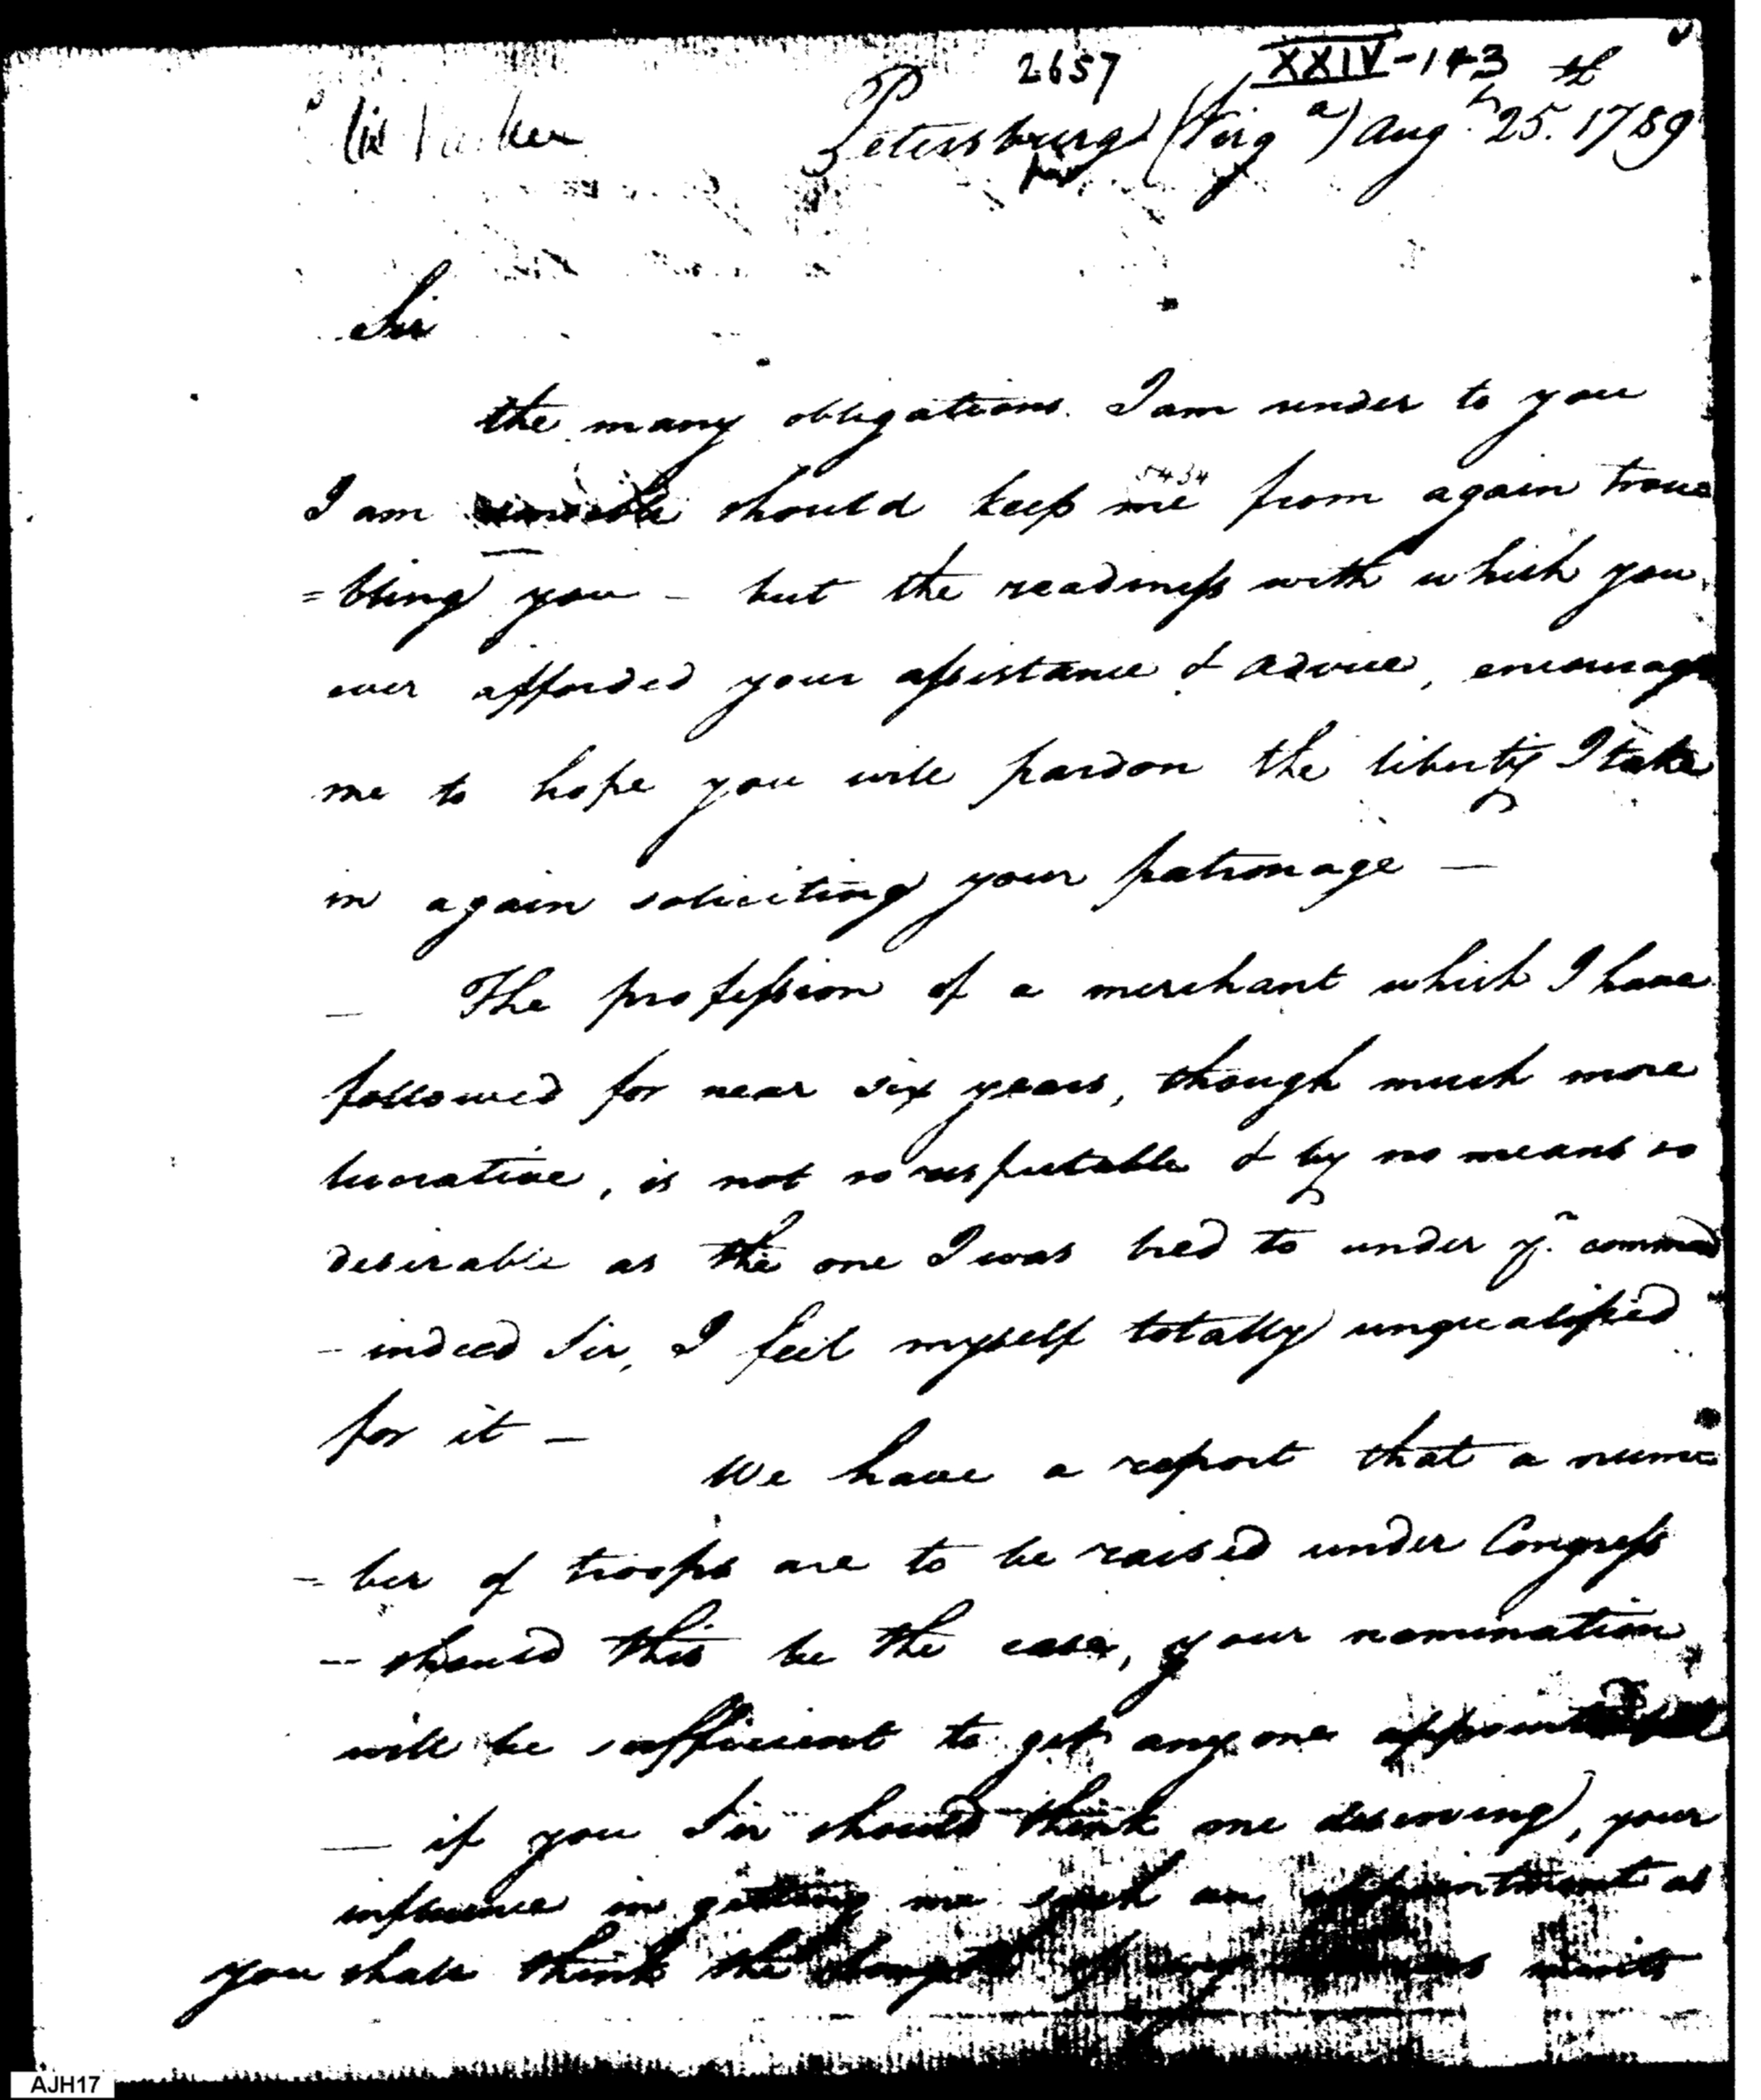 2657 XXIV-143
Petersburg (Virgᵃ) Augᵗ 25.ᵗʰ 1789
Sir
the many obligations I am under to you
I am sensible should keep me from again trou
5434
=bling you - but the readiness with which you
ever afforded your assistance & advice, encourage
me to hope you will pardon the liberty I take
in again soliciting your patronage —
— The profession of a merchant which I have
followed for near six years, though much more
lucrative, is not so respectable & by no means so
desirable as the one I was bred to under yʳ command
- indeed Sir, I feel myself totally unqualified
for it —
We have a report that a num
- ber of troops are to be raised under Congress
- should this be the case, your nomination
will be sufficient to get any one appointed
— if you Sir should think me deserving, your
influence in getting me such an appointment as
you shall think the merits
AJH17